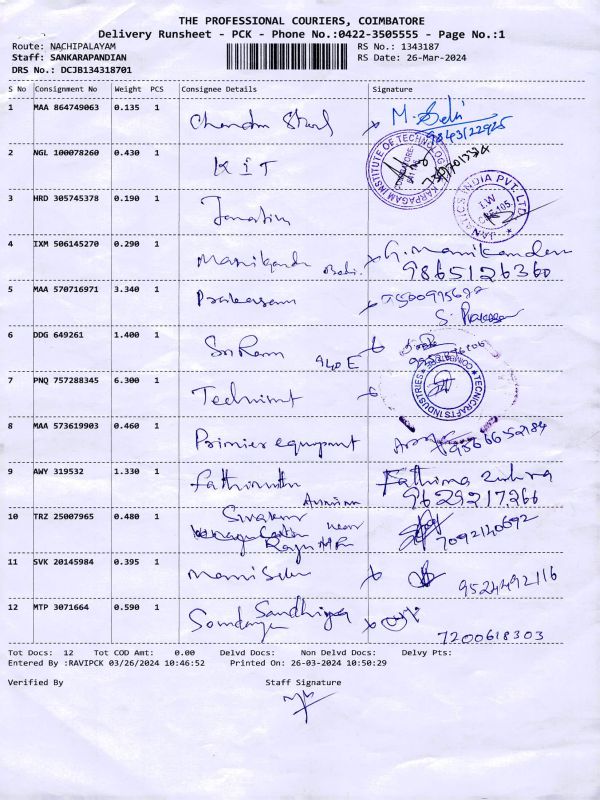 THE PROFESSIONAL COURIERS, COIMBATORE
Delivery Runsheet - PCK - Phone No.:0422-3505555 - Page No.:1
Route: NACHIPALAYAM RS No.: 1343187
Staff: SANKARAPANDIAN RS Date: 26-Mar-2024
DRS No.: DCJB134318701
S No Consignment No Weight PCS Consignee Details Signature
1 MAA 864749063 0.135 1 M. Selvi
9843122925
2 NGL 100078260 0.430 1 KIT
KARPAGAM INSTITUTE OF TECHNOLOGY
COIMBATORE
3 HRD 305745378 0.190 1
INDIA PVT. LTD
I.W
4 IXM 506145270 0.290 1 Manikanda G. Manikandan
9865126360
5 MAA 570716971 3.340 1 Prakasam
S.
6 DDG 649261 1.400 1 Sri Ram 940 E
7 PNQ 757288345 6.300 1
TECNICRAFTS INDUSTRIES COIMBATORE
8 MAA 573619903 0.460 1 Primier equpment 9566652184
9 AWY 319532 1.330 1 Fathima
9629217366
10 TRZ 25007965 0.480 1 Sivakum near
7092140692
11 SVK 20145984 0.395 1
9524492116
12 MTP 3071664 0.590 1 Sandhiya
7200618303
Tot Docs: 12 Tot COD Amt: 0.00 Delvd Docs: Non Delvd Docs: Delvy Pts:
Entered By :RAVIPCK 03/26/2024 10:46:52 Printed On: 26-03-2024 10:50:29
Verified By Staff Signature